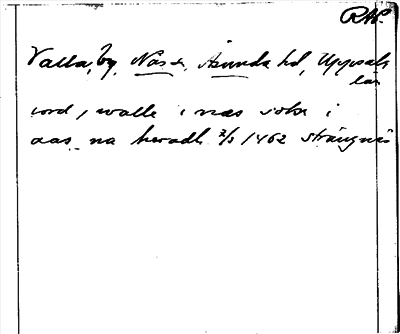 RAP.
Valla, by, Näs sn, Åsunda hd, Uppsala
län
jord, walle i næs sokn i
aas_na heradh 7/3 1462 Strängnäs